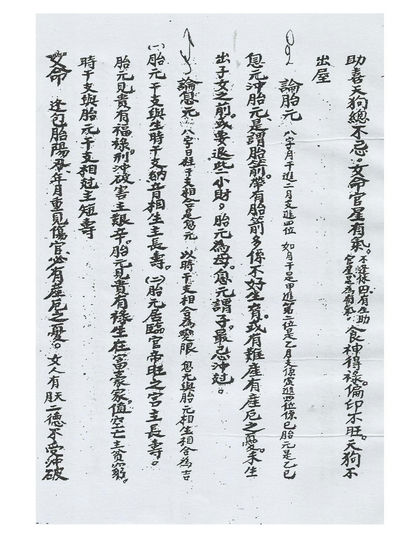 助喜天狗總不忌。女命官星有氣。不逢休囚。有生助官星是為有氣。食神得祿。偏印不旺。天狗不
出屋
論胎元 八字月干進一月支進四位 如月干是甲進第二位是乙月支係寅進四位係巳胎元是乙巳
息元沖胎元。是謂胎前帶有胎前多係不好生育。或有難產有產厄之憂。未生
出子女之前。或要退些小財。胎元為母。息元謂子。最忌沖尅。
論息元 八字日柱干支相合是息元 以時干支相合為變限 息元與胎元相生相合為吉
(一)胎元干支與生時干支納音相生主長壽。(二)胎元居臨官帝旺之宮主長壽。
胎元見貴有福祿。刑沖破害主艱辛。胎元見貴有祿生在富豪家。值空亡主貧窮。
時干支與胎元干支相尅主短壽
女命 逢包胎陽刃年月重見傷官必有產厄之憂。女人有天月二德不受沖破